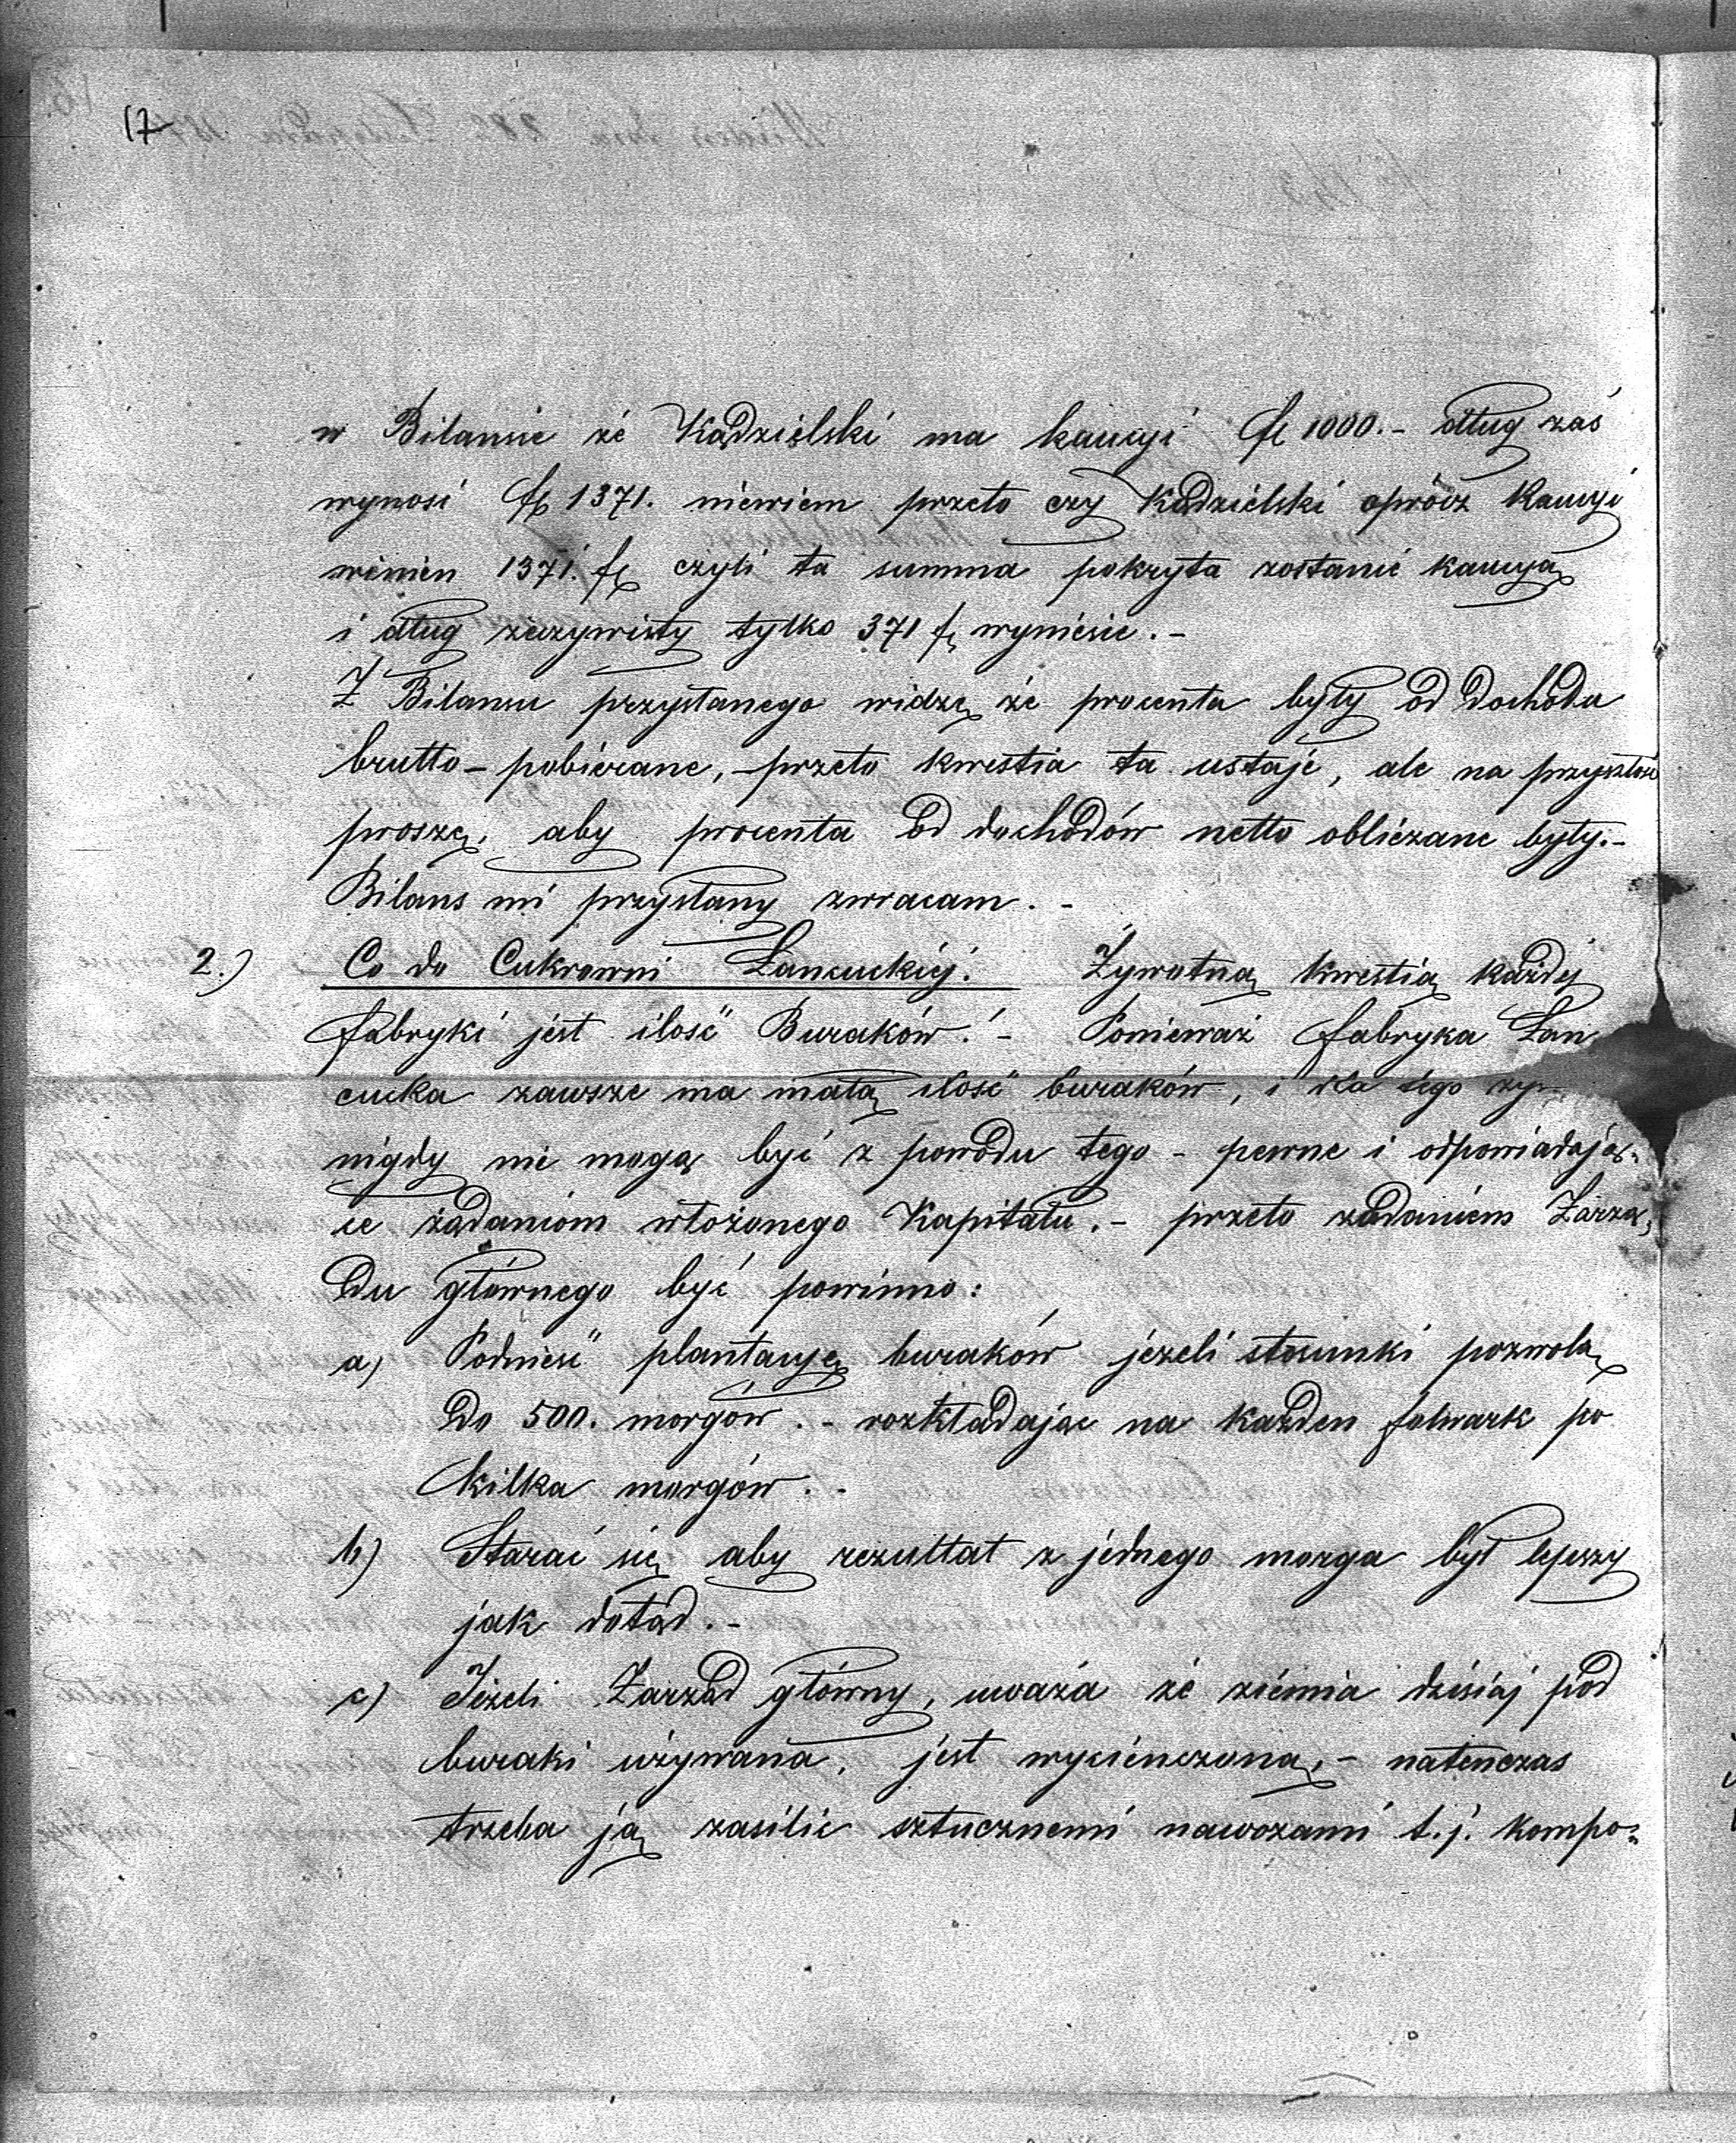 17
w Bilansie że Kądzielski ma kaucyi fl 1000.- dług zaś
wynosi fl 1371. niewiem przeto czy Kądzielski oprócz Kaucyi
winien 1371. fl czyli ta summa pokryta zostanie kaucyą
i dług rzeczywisty tylko 371 fl wyniesie.-
Z Bilansu przysłanego widzę że procenta były od dochodu
brutto - pobierane, - przeto kwestia ta ustaje, ale na przyszłość
proszę, aby procenta od dochodów netto obliczane były.-
Bilans mi przysłany zwracam.-
2.) Co do Cukrowni Łancuckiej. Żywotną kwestią każdej
fabryki jest ilość Buraków! - Ponieważ fabryka Łan
cucka zawsze ma małą ilość buraków, i dla tego
nigdy nie mogą być z powodu tego - pewne i odpowiadają-
ce żądaniom włożonego Kapitału.- przeto zadaniem Zarzą-
du głównego być powinno:
a) Podnieść plantacyę buraków jeżeli stosunki pozwolą
do 500. morgów.- rozkładając na każden folwark po
kilka morgów.-
b) Starać się aby rezultat z jednego morga był lepszy
jak dotąd.-
c) Jeżeli Zarząd główny, uważa że ziemia dzisiaj pod
buraki używana, jest wycieńczoną,- natenczas
trzeba ją zasilić sztucznemi nawozami t.j. kompo-